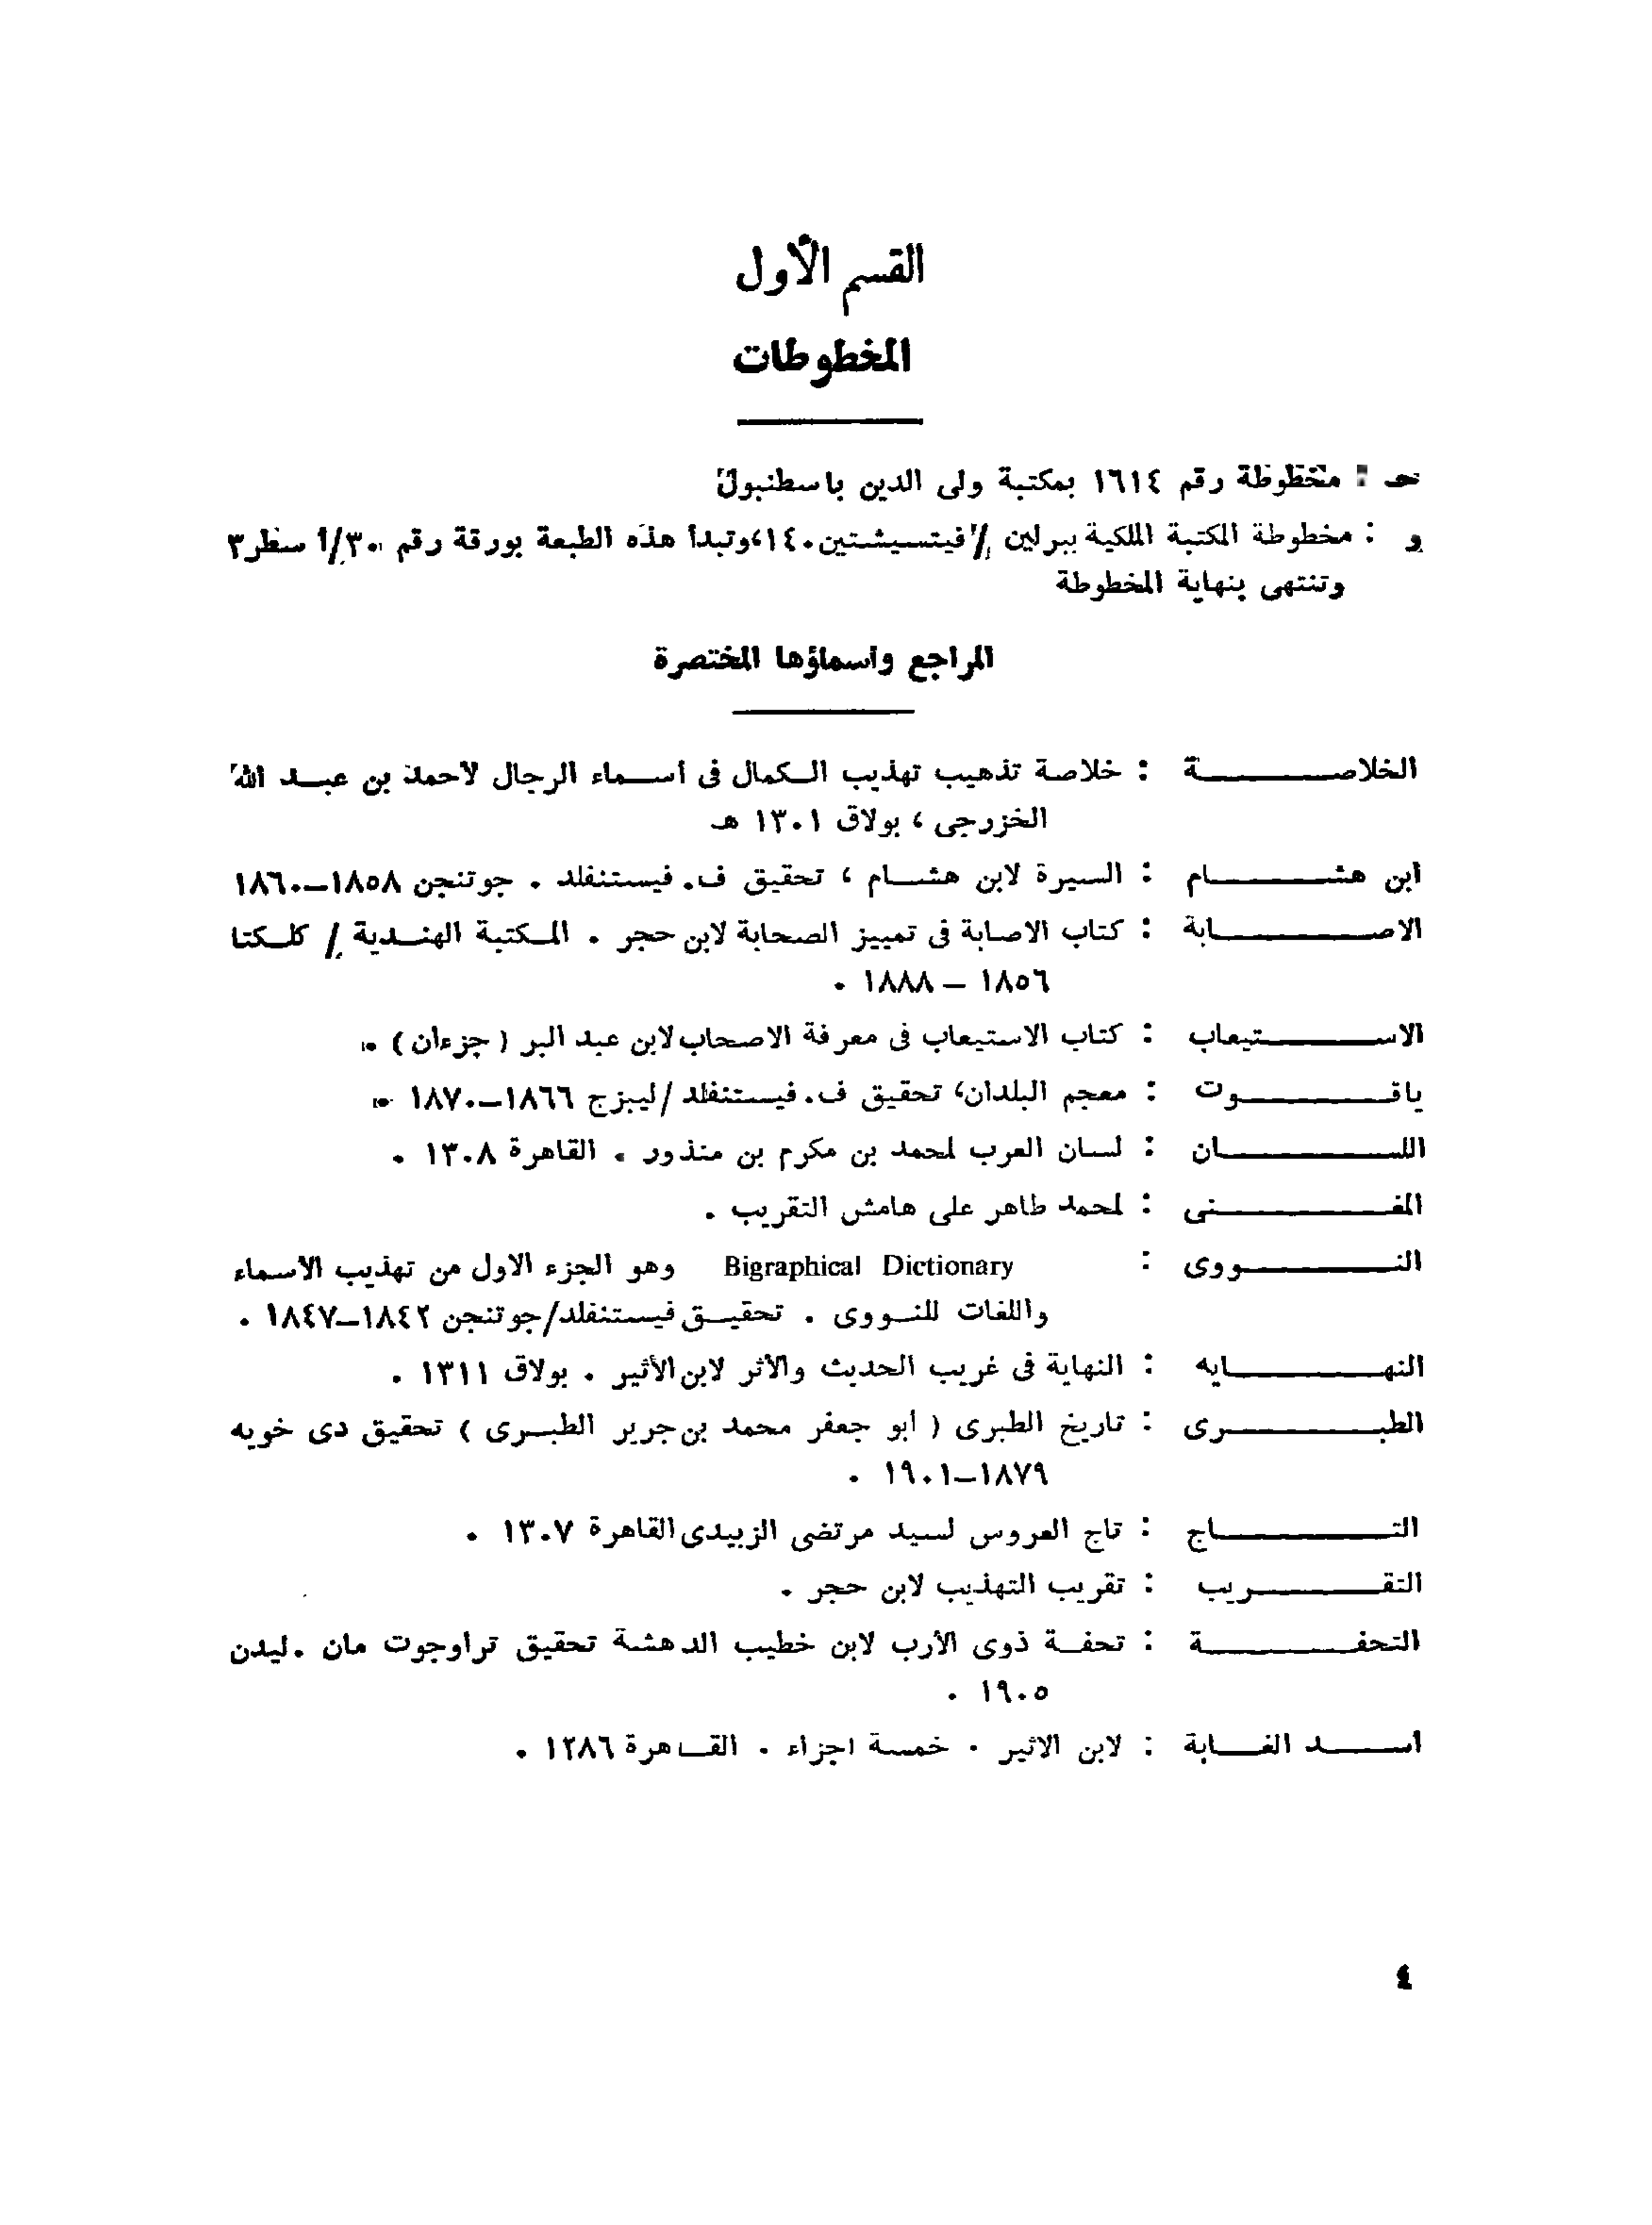 القسم الأول
المخطوطات
حـ : مخطوطة رقم ١٦١٤ بمكتبة ولى الدين باسطنبول
و : مخطوطة المكتبة الملكية ببرلين / فيتسيشتين ١٤٠، وتبدأ هذه الطبعة بورقة رقم ٣٠/أ سطر ٣
وتنتهى بنهاية المخطوطة
المراجع واسماؤها المختصرة
الخلاصة : خلاصة تذهيب تهذيب الكمال فى أسماء الرجال لاحمد بن عبد الله
الخزرجى ، بولاق ١٣٠١ هـ
ابن هشام : السيرة لابن هشام ، تحقيق ف. فيستنفلد . جوتنجن ١٨٥٨–١٨٦٠
الاصابة : كتاب الاصابة فى تمييز الصحابة لابن حجر . المكتبة الهندية / كلكتا
١٨٥٦ – ١٨٨٨ .
الاستيعاب : كتاب الاستيعاب فى معرفة الاصحاب لابن عبد البر ( جزءان ) .
ياقوت : معجم البلدان، تحقيق ف. فيستنفلد / ليبزج ١٨٦٦–١٨٧٠ .
اللسان : لسان العرب لمحمد بن مكرم بن منذور . القاهرة ١٣٠٨ .
المغنى : لمحمد طاهر على هامش التقريب .
النووى : Bigraphical Dictionary وهو الجزء الاول من تهذيب الاسماء
واللغات للنووى . تحقيق فيستنفلد/جوتنجن ١٨٤٢–١٨٤٧ .
النهايه : النهاية فى غريب الحديث والاثر لابن الأثير . بولاق ١٣١١ .
الطبرى : تاريخ الطبرى ( ابو جعفر محمد بن جرير الطبرى ) تحقيق دى خويه
١٨٧٩–١٩٠١ .
التاج : تاج العروس لسيد مرتضى الزبيدى القاهرة ١٣٠٧ .
التقريب : تقريب التهذيب لابن حجر .
التحفة : تحفة ذوى الأرب لابن خطيب الدهشة تحقيق تراوجوت مان . ليدن
١٩٠٥ .
اسد الغابة : لابن الاثير . خمسة اجزاء . القاهرة ١٢٨٦ .
٤